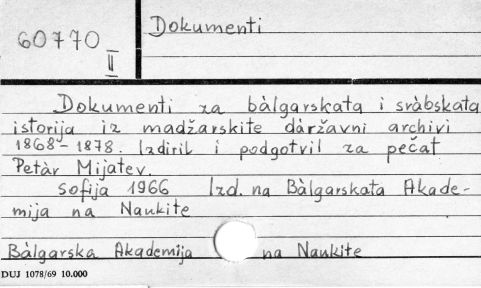 60770
II
Dokumenti
Dokumenti za bàlgarskata i sràbskata
istorija iz madžarskite dàržavni archivi
1868-1878. Izdiril i podgotvil za pečat
Petàr Mijatev.
Sofija 1966 Izd. na Bàlgarskata Akade-
mija na Naukite
Bàlgarska Akademija na Naukite
DUJ 1078/69 10.000